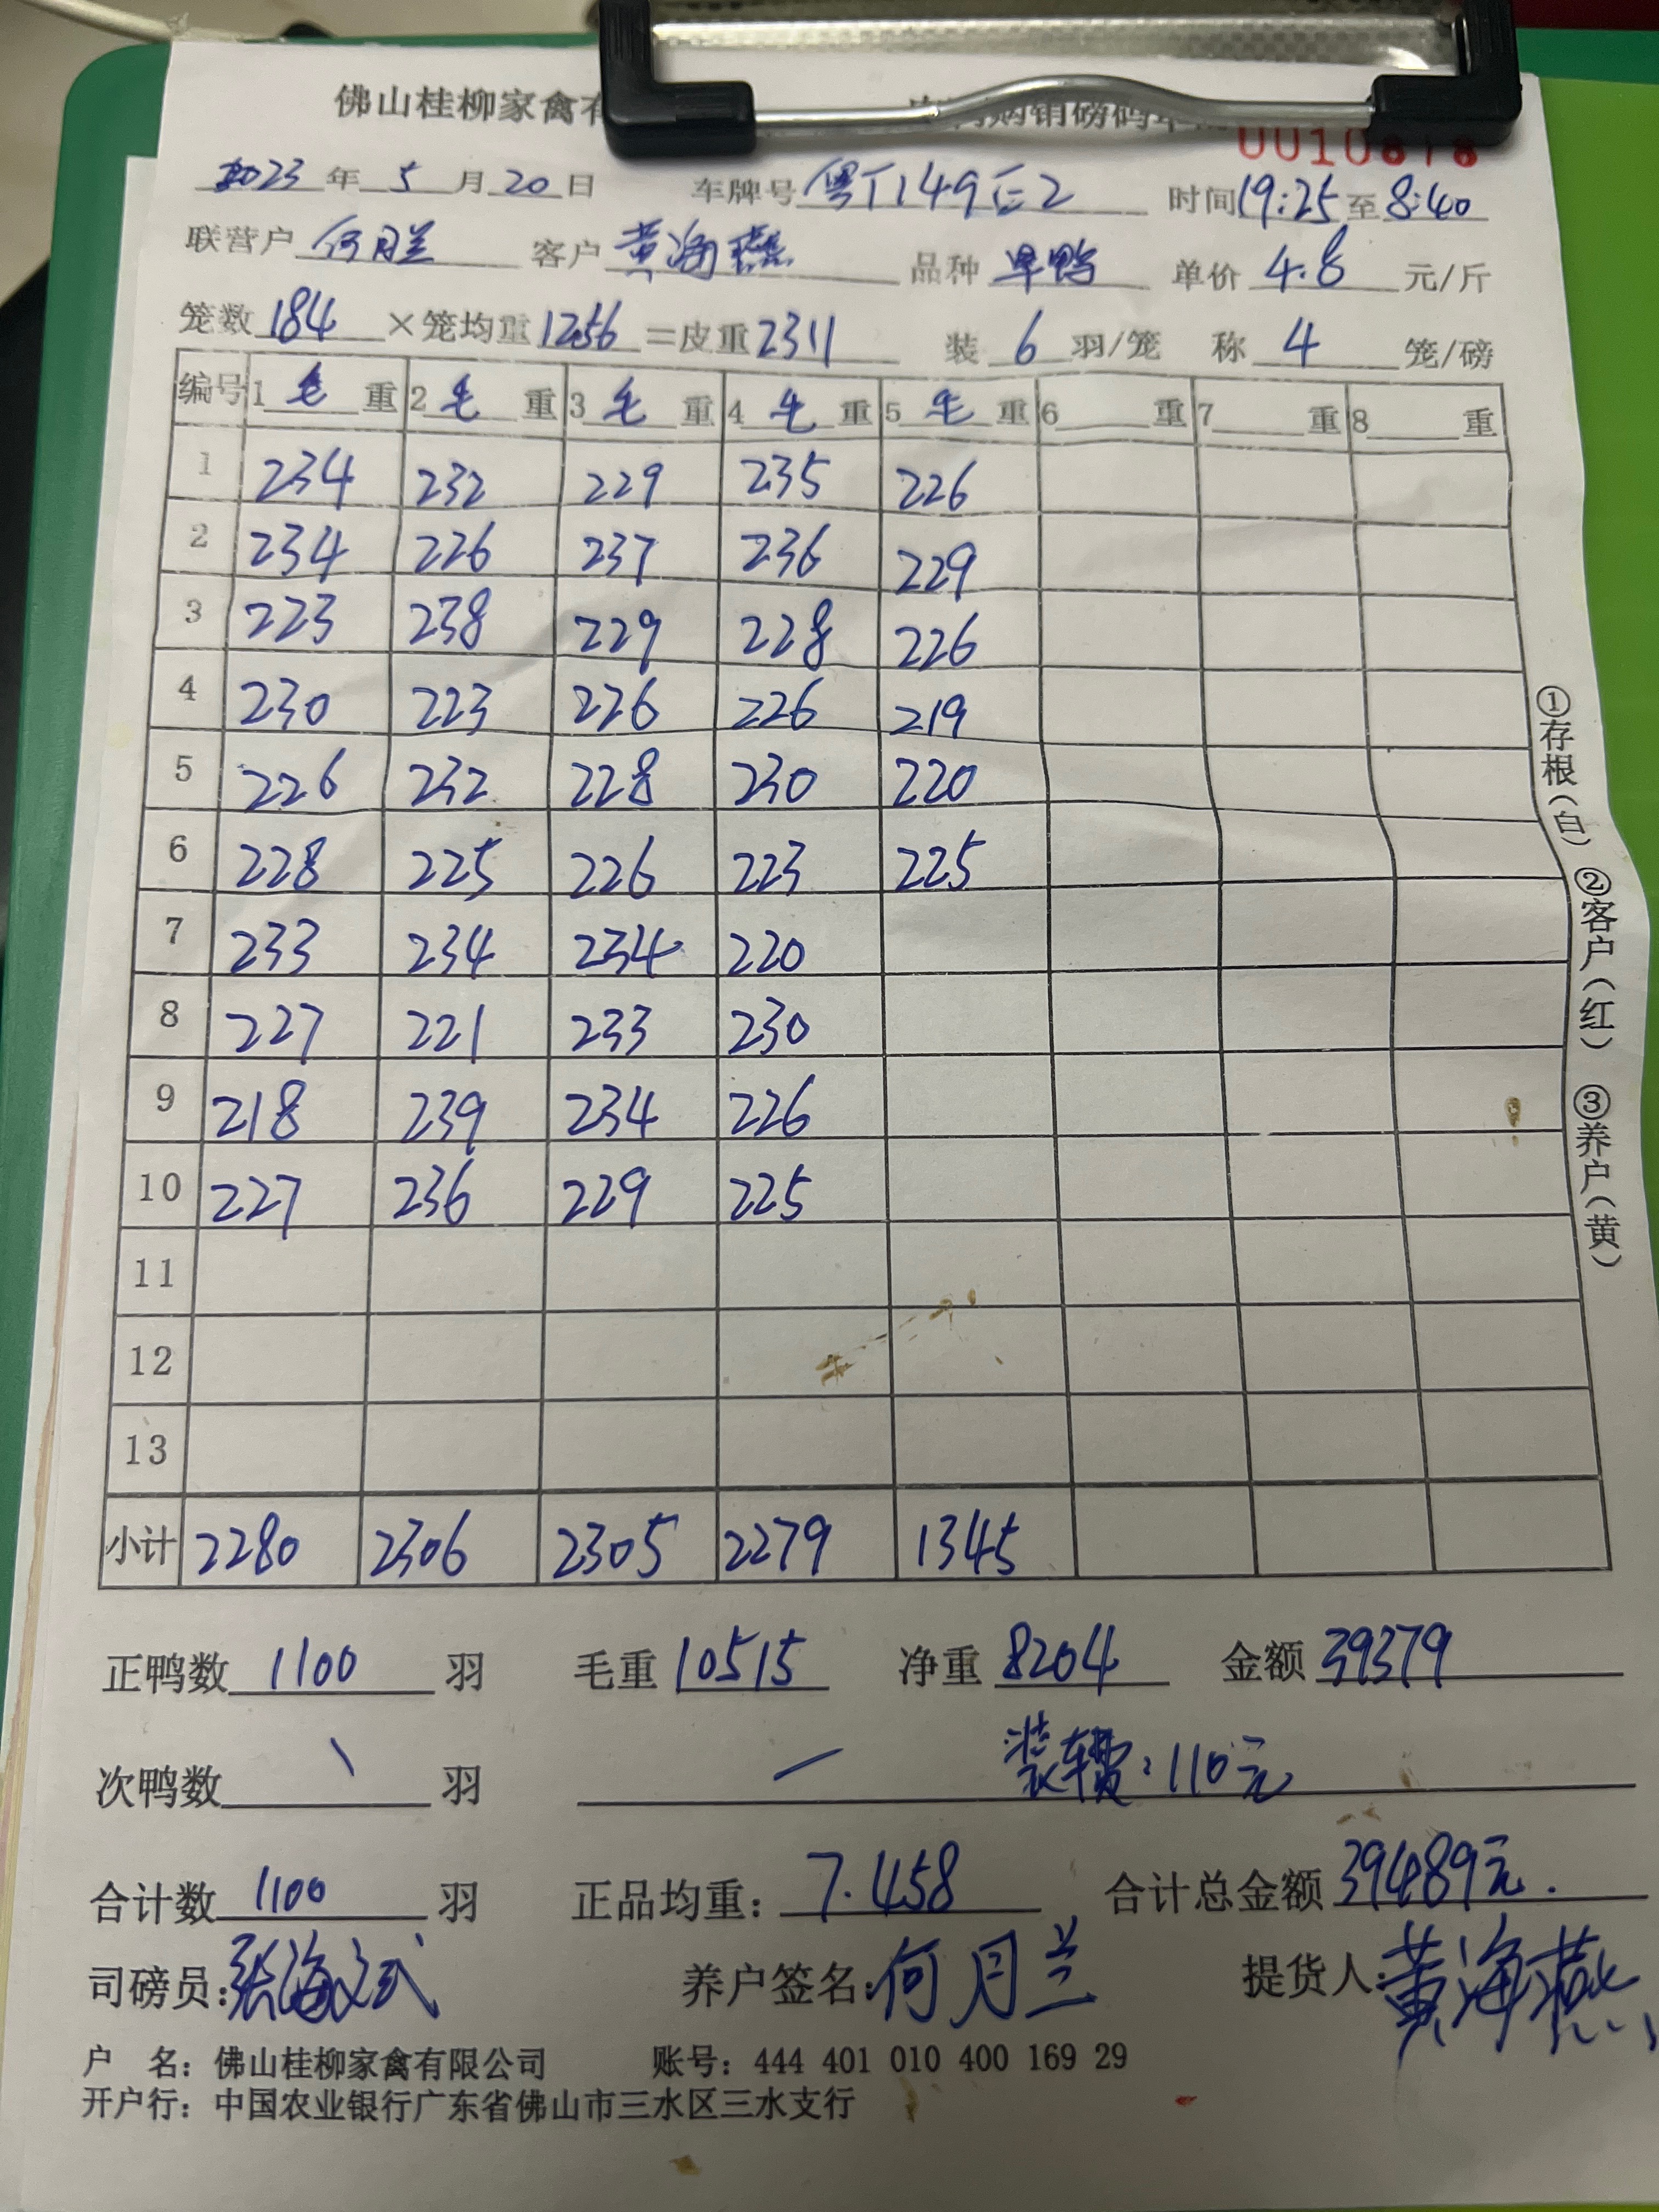 佛山桂柳家禽有 购销磅码单 0010878
2023年 5 月 20 日 车牌号 粤T149E2 时间 19:25 至 8:40
联营户 何月兰 客户 黄海燕 品种 旱鸭 单价 4.8 元/斤
笼数 184 ×笼均重 12.56 =皮重 2311 装 6 羽/笼 称 4 笼/磅
编号 1 毛 重 2 毛 重 3 毛 重 4 毛 重 5 毛 重 6 重 7 重 8 重
1 234 232 229 235 226
2 234 226 237 236 229
3 223 238 229 228 226
4 230 223 226 226 219
5 226 232 228 230 220
6 228 225 226 223 225
7 233 234 234 220
8 227 221 233 230
9 218 239 234 226
10 227 236 229 225
11
12
13
小计 2280 2306 2305 2279 1345
正鸭数 1100 羽 毛重 10515 净重 8204 金额 39379
次鸭数 \ 羽 — 装车费:110元
合计数 1100 羽 正品均重: 7.458 合计总金额 39489元.
司磅员: 张海 养户签名: 何月兰 提货人: 黄海燕
户 名: 佛山桂柳家禽有限公司 账号: 444 401 010 400 169 29
开户行: 中国农业银行广东省佛山市三水区三水支行
①存根(白) ②客户(红) ③养户(黄)